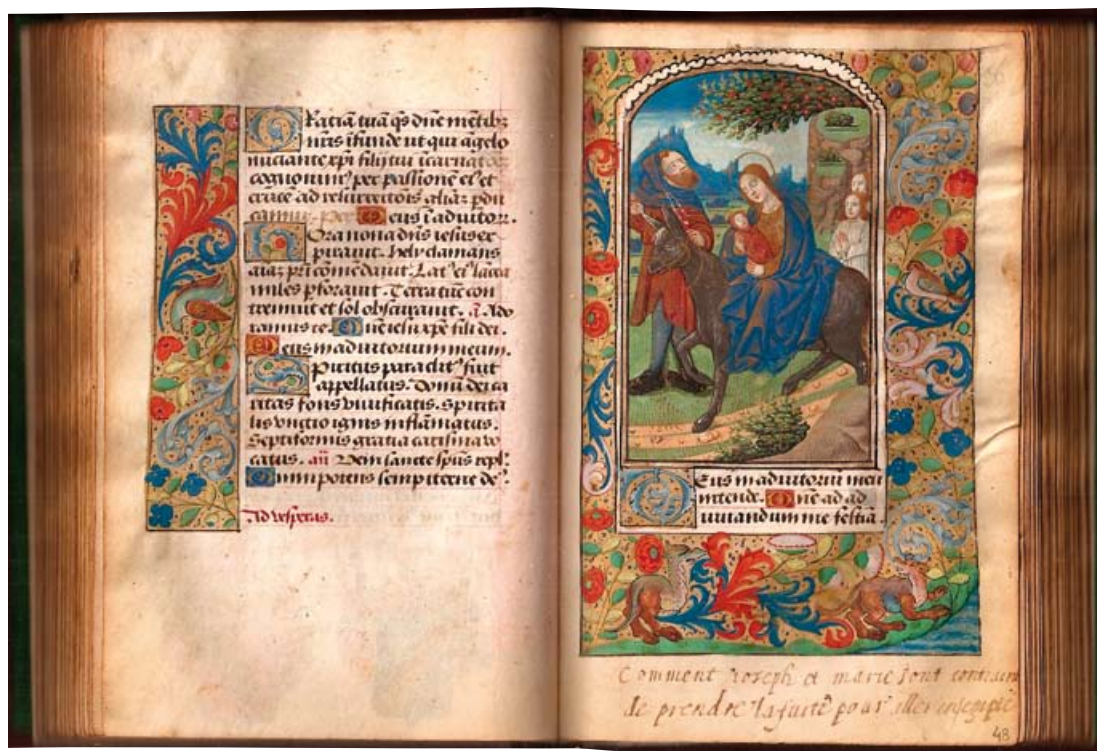 Gratiā tuā qs dñe mētib;
nr̄is īfunde ut qui āgelo
nūciante xp̄i filij tui īcarnatoēz
cognouim⁹ per passionē ei⁹ et
crucē ad resurrectōis gliaz pdu
camur. per Deus ī adiutor.
Hora nona dn̄s iesus ex
pirauit. hely clamans
aīaz pr̄i cōmēdauit. Lat⁹ ei⁹ lācea
miles pforauit. Terra tūc con
tremuit et sol obscurauit. ā Ado
ramus te. Dñe iesu xp̄e fili dei.
Deus in adiutorium meum.
Spiritus paraclit⁹ fuit
appellatus. Donū dei ca
ritas fons viuificatis. Spirita
lis vnctio ignis inflamatus.
Septiformis gratia carisma vo
catus. an̄ Veni sancte sp̄us repl.
Omnipotens sempiterne de⁹.
Ad vesperas.
Deus in adiutoriū meū
intende. Dñe ad ad
iuuandum me festīa.
Comment ioseph et marie sont contrains
de prendre la fuite pour aller en egipte
48